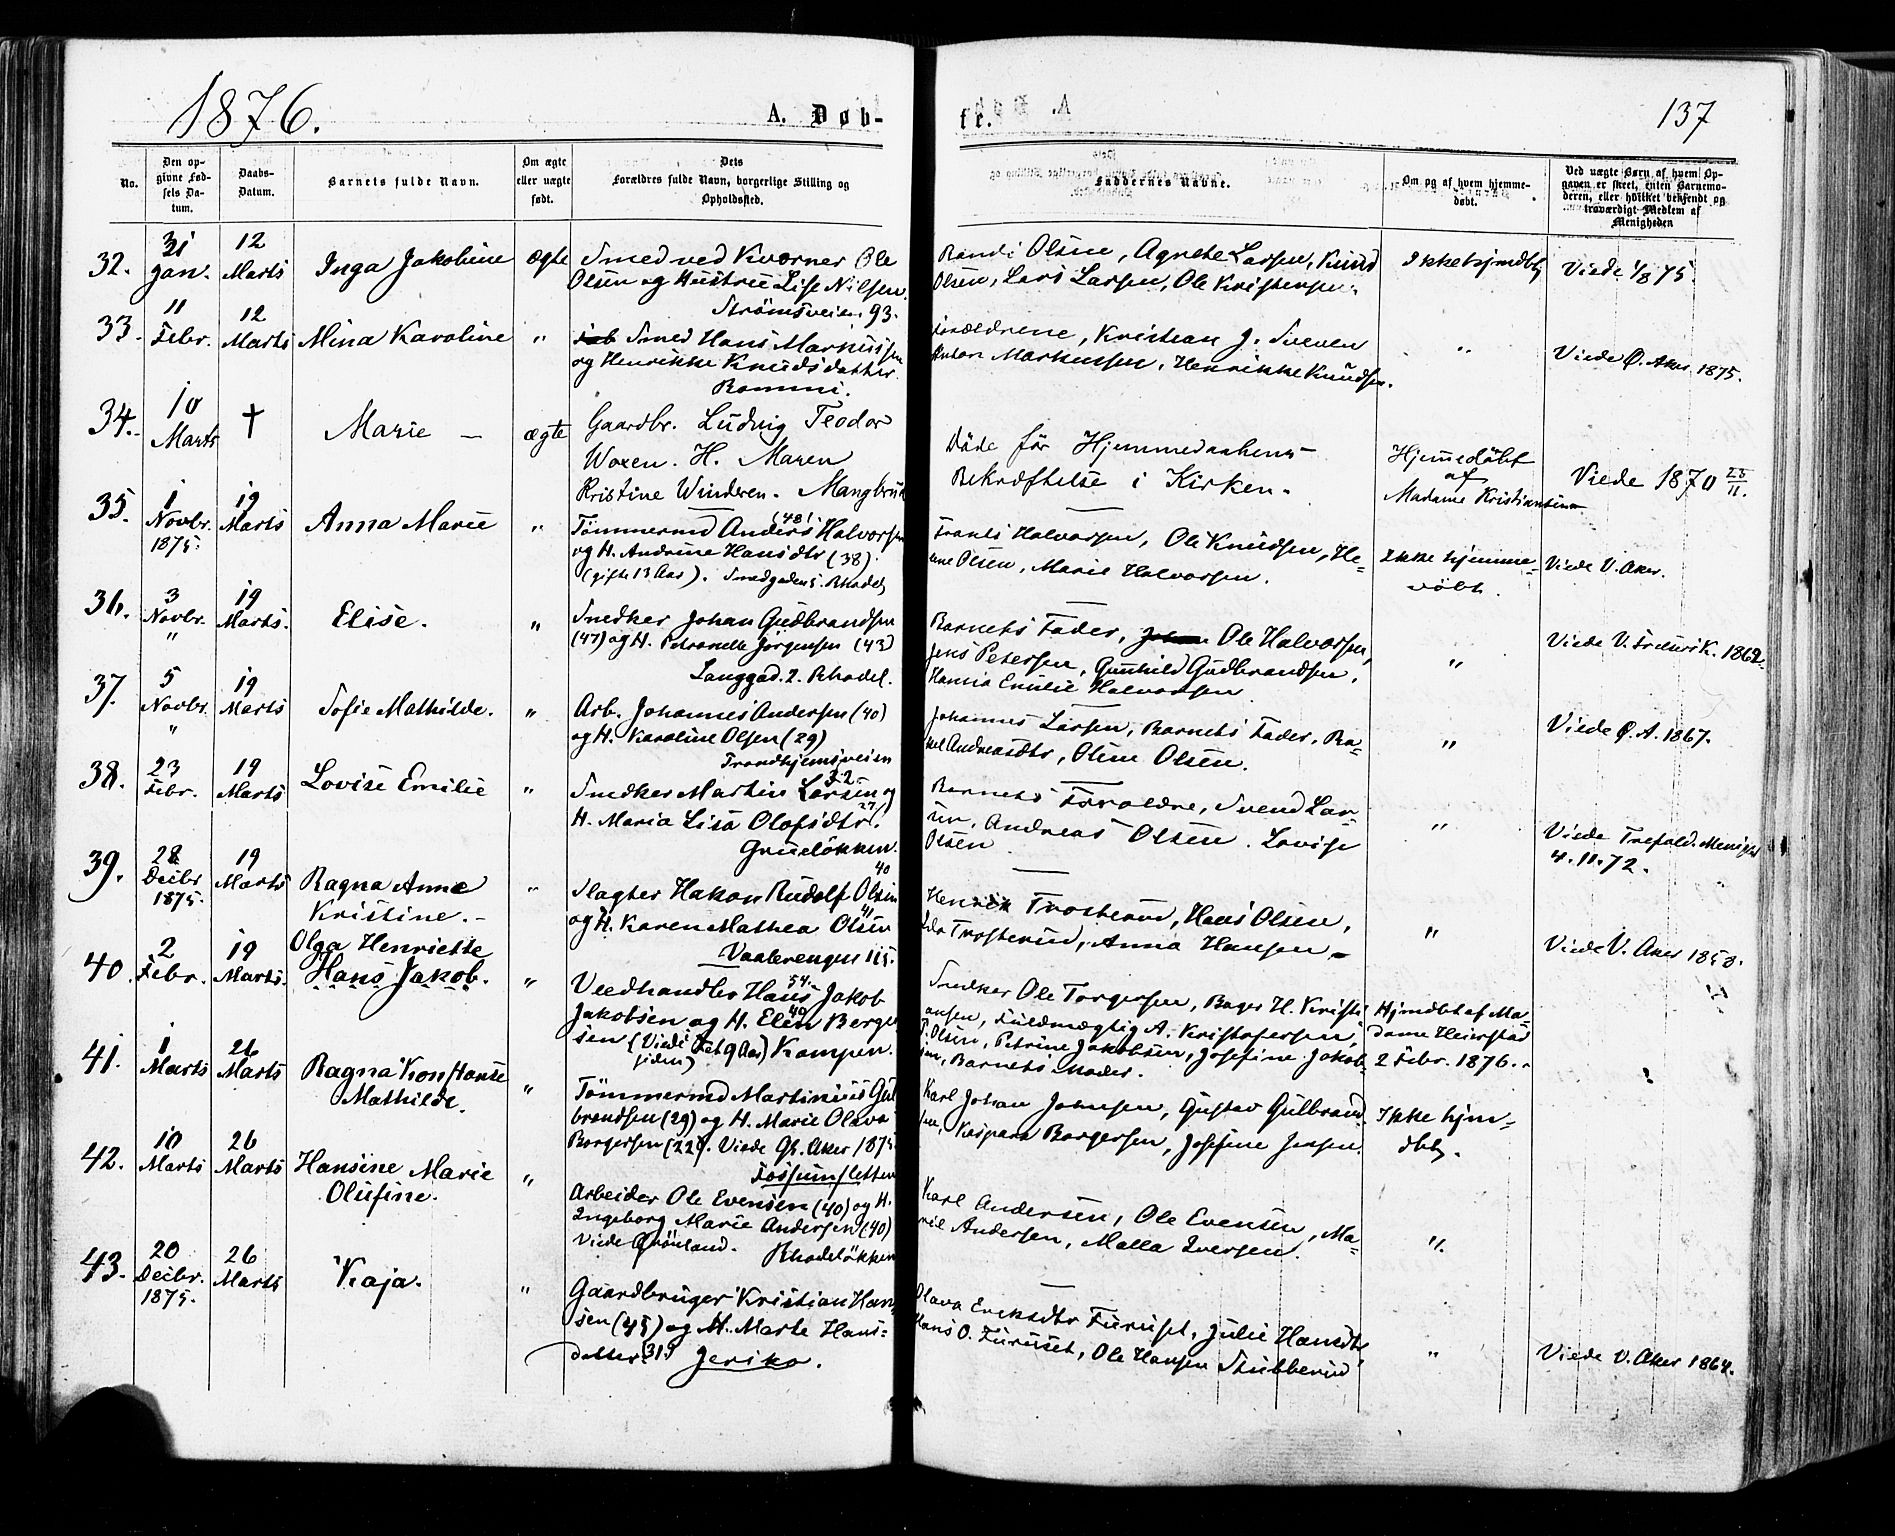 1876.
A. Døb-
te.
137
No.
Den op-
givne Fød-
sels Da-
tum.
Daabs-
Datum.
Barnets fulde Navn.
Om ægte
eller uægte
født.
Dets
Forældres fulde Navn, borgerlige Stilling og
Opholdssted.
Faddernes Navne.
Om og af hvem hjemme-
døbt.
Ved uægte Børn af hvem Op-
gaven er skeet, enten Barnemo-
deren, eller hvilket bekjendt og
troværdigt Medlem af
Menigheden
32.
31
Jan.
12
Marts
Inga Jakobine
ægte
Smed ved Kværner Ole
Olsen og Hustrue Lise Nilsen
Strömsveien 93.
Randi Olsen, Agnete Larsen, Knud
Olsen, Lars Larsen, Ole Kristensen.
Ikke hjmdbt
Viede 1/8 75.
33.
11
Febr.
12
Marts
Mina Karoline
"
Smed Hans Markussen
og Henrikke Knudsdatter
Rommi.
Forældrene, Kristian J. Svever
Anton Markussen, Henrikke Knudsen.
"
Viede Ø. Aker 1875.
34.
10
Marts
†
Marie –
ægte
Gaardbr. Ludvig Teodor
Woxen. H. Maren
Kristine Winderen. Mangbrük
Döde för Hjemmedaabens
Bekræftelse i Kirken.
Hjemmedöbt
af
Madame Kristiansen
Viede 1870 25/11.
35.
1
Novbr.
1875.
19
Marts
Anna Marie
"
Tømmermd Anders (48) Halvorsen
og H. Andrine Hansdtr (38).
(gifte 13 Aar). Smedgaden 5. Rhodel
Frants Halvorsen, Ole Knudsen, He-
Olsen, Marie Halvorsen.
Ikke hjemme-
döbt.
Viede V. Aker.
36.
3
Novbr.
"
19
Marts.
Elise.
"
Snedker Johan Gudbrandsen
(47) og H. Petronelle Jörgensen (43)
Langgad. 2. Rhodel.
Barnets Fader, Ole Halvorsen,
Jens Petersen, Gunhild Gudbrandsen,
Hansia Emilie Halvorsen
"
Viede V. Fredrik. 1862.
37.
5
Novbr.
"
19
Marts
Sofie Mathilde.
"
Arb. Johannes Andersen (40)
og H. Karoline Olsen (29)
Trondhjemsveien
Johannes Larsen, Barnets Fader, Ra-
kel Andreasdtr, Oline Olsen.
"
Viede Ø. A. 1867.
38.
23
Febr.
19
Marts
Lovise Emilie
"
Snedker Martin Larsen 32 og
H. Maria Lisa Olofsdtr. 27)
Grueløkken.
Barnets Forældre, Svend Lar-
sen, Andreas Olsen. Lovise
Olsen
"
Viede Trefold. Menighed
4.11.72.
39.
28
Decbr
1875.
19
Marts
Ragna Anne
Kristine. –
"
Slagter Hakon Rudolf Olsen 40
og H. Karen Mathea Olsen 41
Vaalerengen 115.
Henrik Trosterud, Hans Olsen,
Ida Trosterud, Anna Hansen –
"
Viede V. Aker 1858.
40.
2
Febr.
19
Marts.
Olga Henriette
Hans Jakob.
"
Veedhandler Hans 54. Jakob
Jakobsen og H. Elen 40 Berge
sen (Viede let 9 Aar siden) Kampen.
Snedker Ole Torgersen, Bager H. Kristi
ansen, Fuldmægtig A. Kristofersen,
P. Olsen, Petrine Jakobsen, Josefine Jakob-
sen, Barnets Moder.
Hjmdbt af Ma
dame Heierstad
2 Febr. 1876.
41.
1
Marts
26
Marts
Ragna Konstanse
Mathilde.
"
Tömmermd Martinius Gul
brandsen (29) og H. Marie Olava
Borgersen (22). Viede Ø. Aker 1875
Fossumsletten
Karl Johan Johnsen, Gustav Gulbrand-
sen, Kaspara Borgersen, Josefine Jensen.
Ikke hjm-
dbt.
42.
10
Marts
26
Marts
Hansine Marie
Olufine.
"
Arbeider Ole Evensen (40) og H.
Ingeborg Marie Andersen (40)
Viede Grönland. Rhodelökken
Karl Andersen, Ole Evensen, Ma-
rie Andersen, Malla Iversen.
"
43.
20
Decbr.
1875.
26
Marts
Kaja.
"
Gaardbruger Kristian Han
sen (45) og H. Marte Hans-
datter (31) Jeriko.
Olava Eriksdtr Furuset, Julie Hansdtr
Hans O. Furuset, Ole Hansen Stubberud
"
Viede V. Aker 1864.